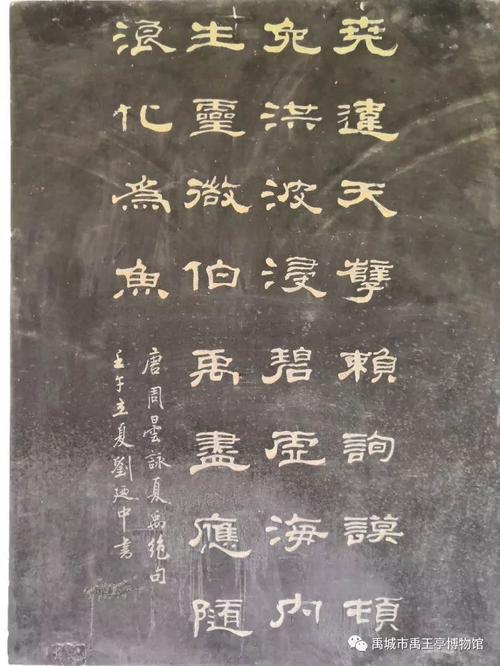 堯違天孽賴詢謨頓
免洪波浸碧虛海内
生靈微伯禹盡應隨
浪化為魚
唐周曇詠夏禹絕句
壬午立夏劉廼中書
禹城市禹王亭博物馆